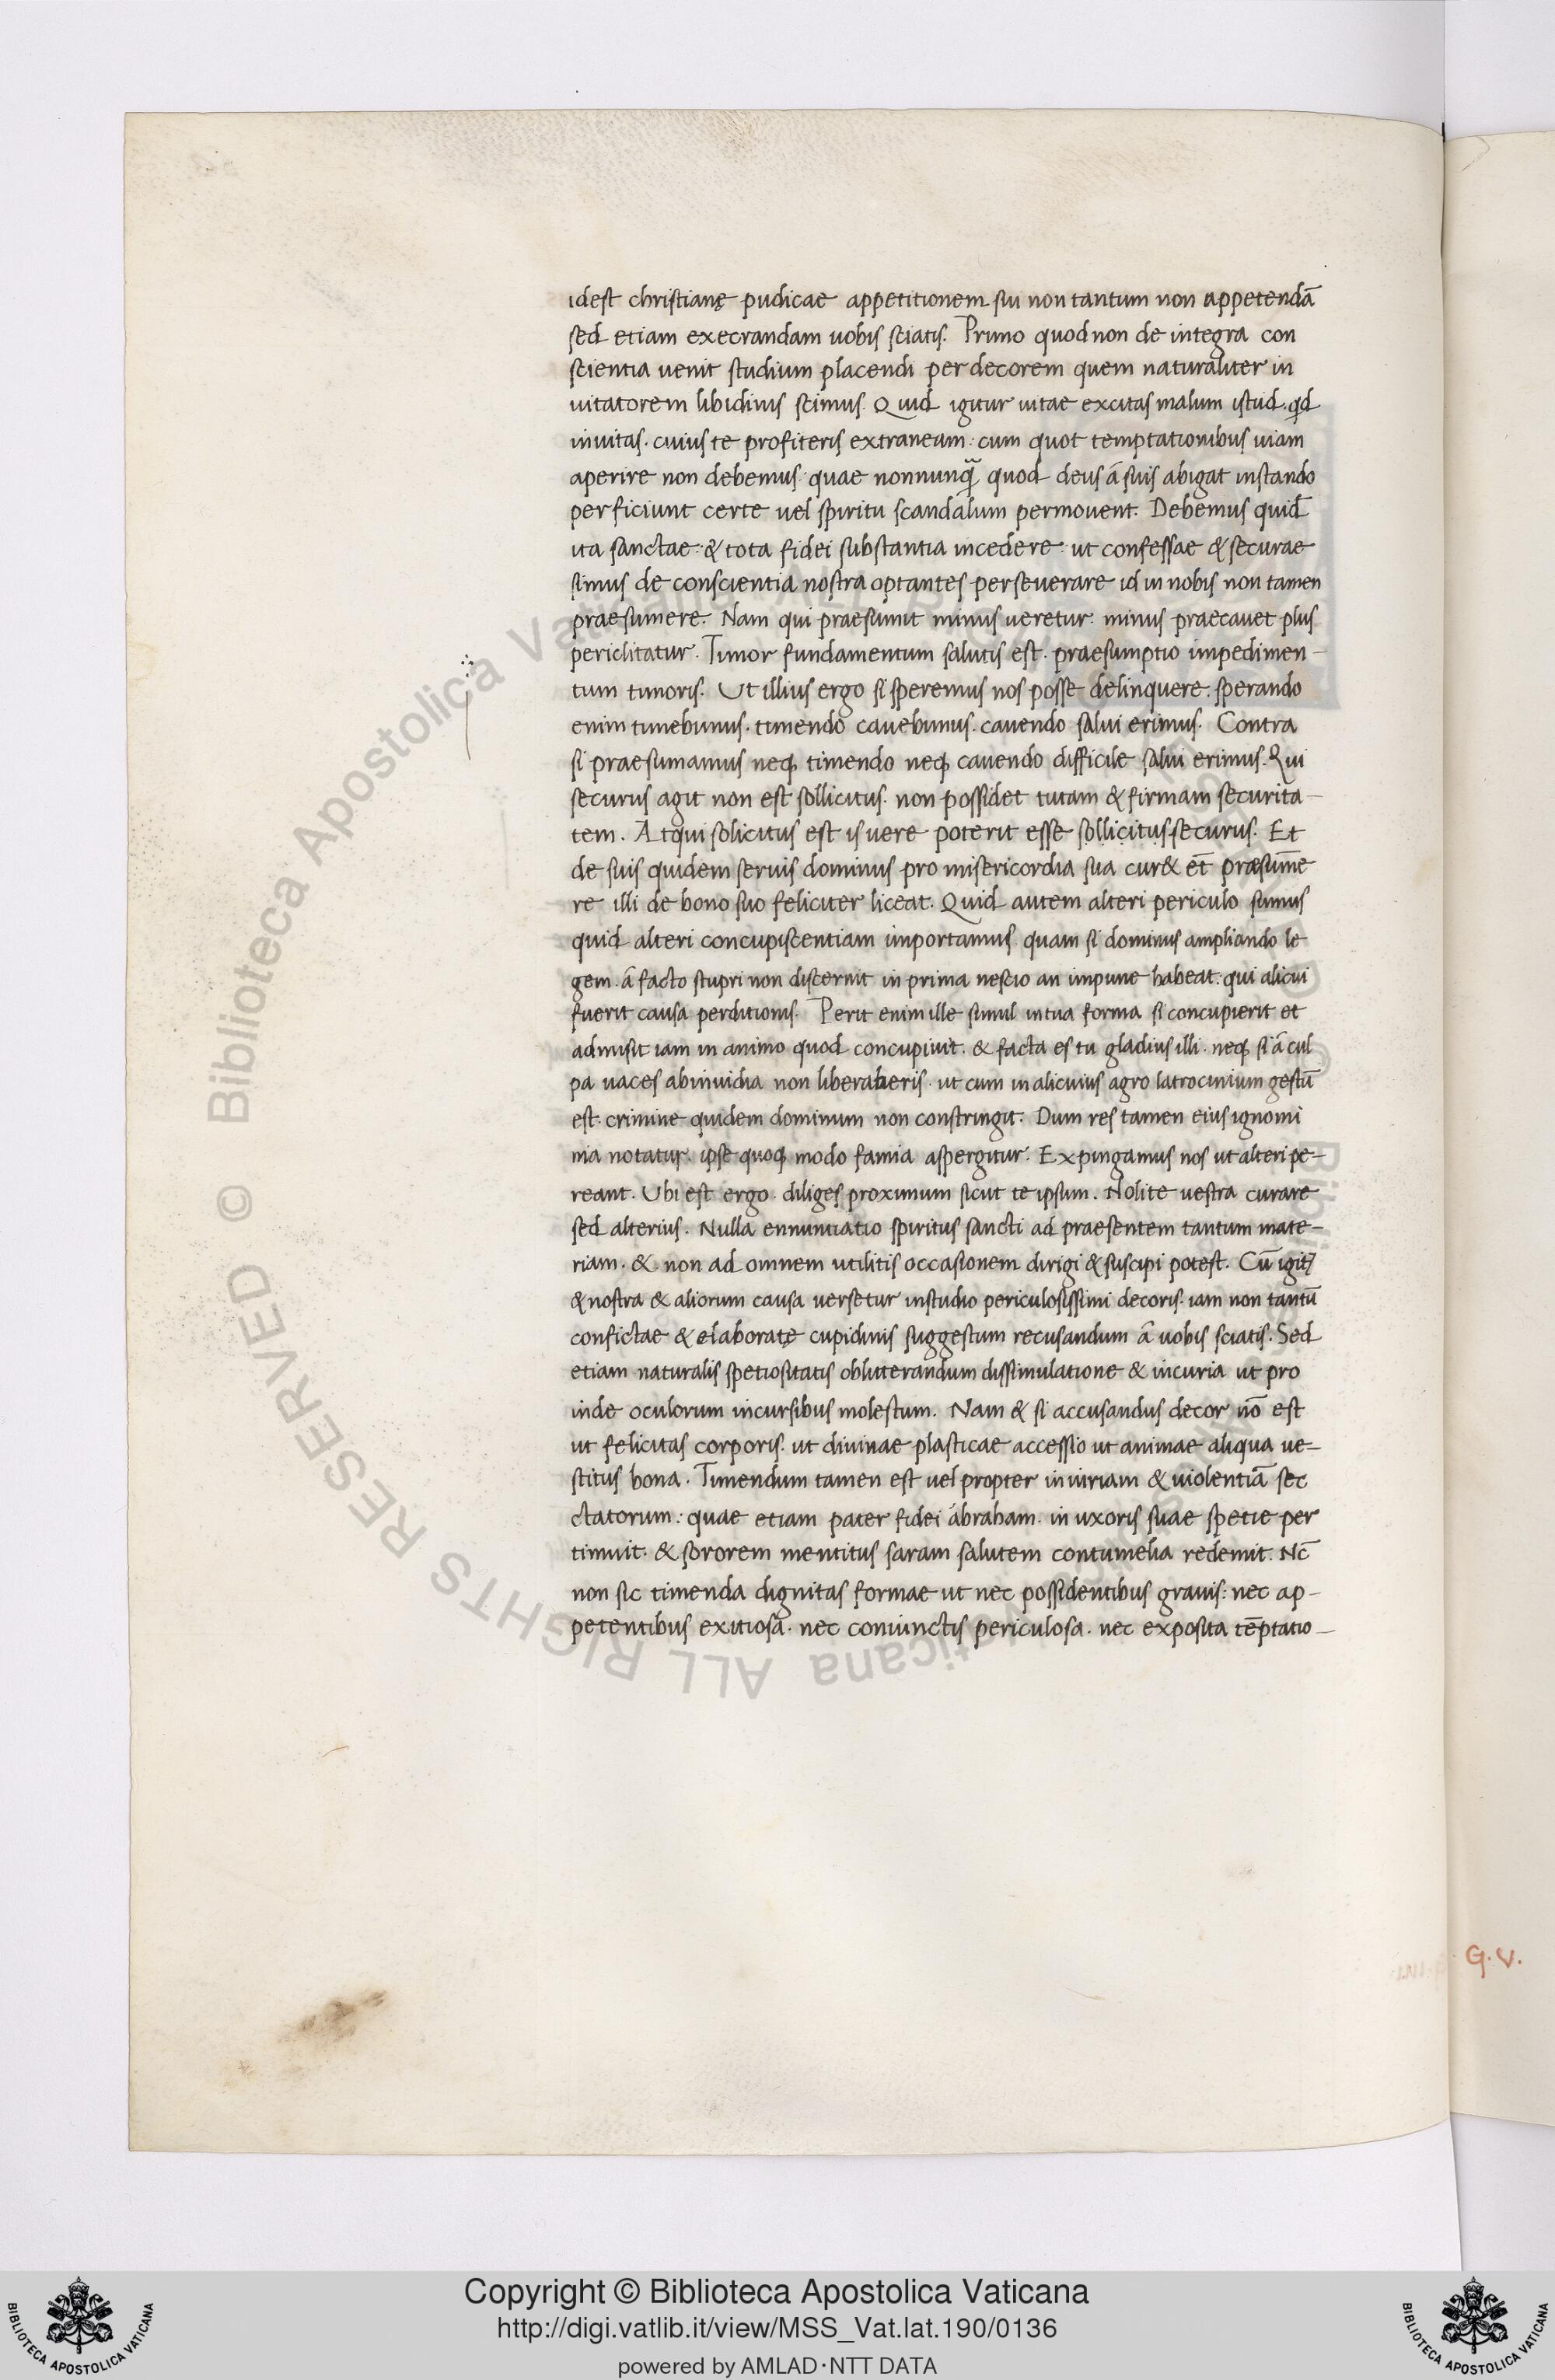 idest christianę pudicae appetitionem sui non tantum non appetendā
sed etiam execrandam uobis sciatis. Primo quod non de integra con
scientia uenit studium placendi per decorem quem naturaliter in
uitatorem libidinis scimus. Quid igitur uitae excitas malum istud. qd
inuitas. cuius te profiteris extraneam. cum quot temptationibus uiam
aperire non debemus. quae nonnunq̃ quod deus á suis abigat instando
perficiunt certe uel spiritu scandalum permouent. Debemus quid
ita sanctae. & tota fidei substantia incedere. ut confessae & securae
simus de conscientia nostra optantes perseuerare id in nobis non tamen
praesumere. Nam qui praesumit minus ueretur. minus praecauet plus
periclitatur. Timor fundamentum salutis est. praesumptio impedimen-
tum timoris. Ut illius ergo si speremus nos posse delinquere. sperando
enim timebimus. timendo cauebimus. cauendo salui erimus. Contra
si praesumamus neq; timendo neq; cauendo difficile salui erimus. Qui
securus agit non est sollicitus. non possidet tutam & firmam securita-
tem. Atqui solicitus est is uere poterit esse sollicitus securus. Et
de suis quidem seruis dominus pro misericordia sua cur& et̄ praesume
re illi de bono suo feliciter liceat. Quid autem alteri periculo simus
quid alteri concupiscentiam importamus quam si dominus ampliando le
gem. á facto stupri non discernit in prima nescio an impune habeat. qui alicui
fuerit causa perditionis. Perit enim ille simul in tua forma si concupierit et
admisit iam in animo quod concupiuit. & facta es tu gladius illi. neq; si á cul
pa uaces abinuidia non liberaberis. ut cum in alicuius agro latrocinium gestū
est. crimine quidem dominum non constringit. Dum res tamen eius ignomi
nia notatur. ipse quoq; modo famia aspergitur. Expingamus nos ut alteri pe-
reant. Ubi est ergo. diliges proximum sicut te ipsum. Nolite uestra curare
sed alterius. Nulla ennuntiatio spiritus sancti ad praesentem tantum mate-
riam. & non ad omnem utilitis occasionem dirigi & suscipi potest. Cū igit̃
& nostra & aliorum causa uersetur instudio periculosissimi decoris. iam non tantū
confictae & elaboratę cupidinis suggestum recusandum á uobis sciatis. Sed
etiam naturalis spetiositatis obliterandum dissimulatione & incuria ut pro
inde oculorum incursibus molestum. Nam & si accusandus decor nō est
ut felicitas corporis. ut diuinae plasticae accessio ut animae aliqua ue-
stitus bona. Timendum tamen est uel propter iniuriam & uiolentiā sec
ctatorum. quae etiam pater fidei ábraham. in uxoris suae spetie per
timuit. & sororem mentitus saram salutem contumelia redemit. Nc̄
non sic timenda dignitas formae ut nec possidentibus grauis. nec ap-
petentibus exitiosa. nec coniunctis periculosa. nec exposita tēptatio-
G. V.
© Biblioteca Apostolica Vaticana ALL RIGHTS RESERVED
Copyright © Biblioteca Apostolica Vaticana
http://digi.vatlib.it/view/MSS_Vat.lat.190/0136
powered by AMLAD·NTT DATA
BIBLIOTECA APOSTOLICA VATICANA
BIBLIOTECA APOSTOLICA VATICANA